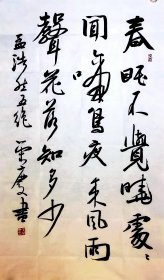 春眠不覺曉處〻
聞啼鳥夜來風雨
聲花落知多少
孟浩然五絕